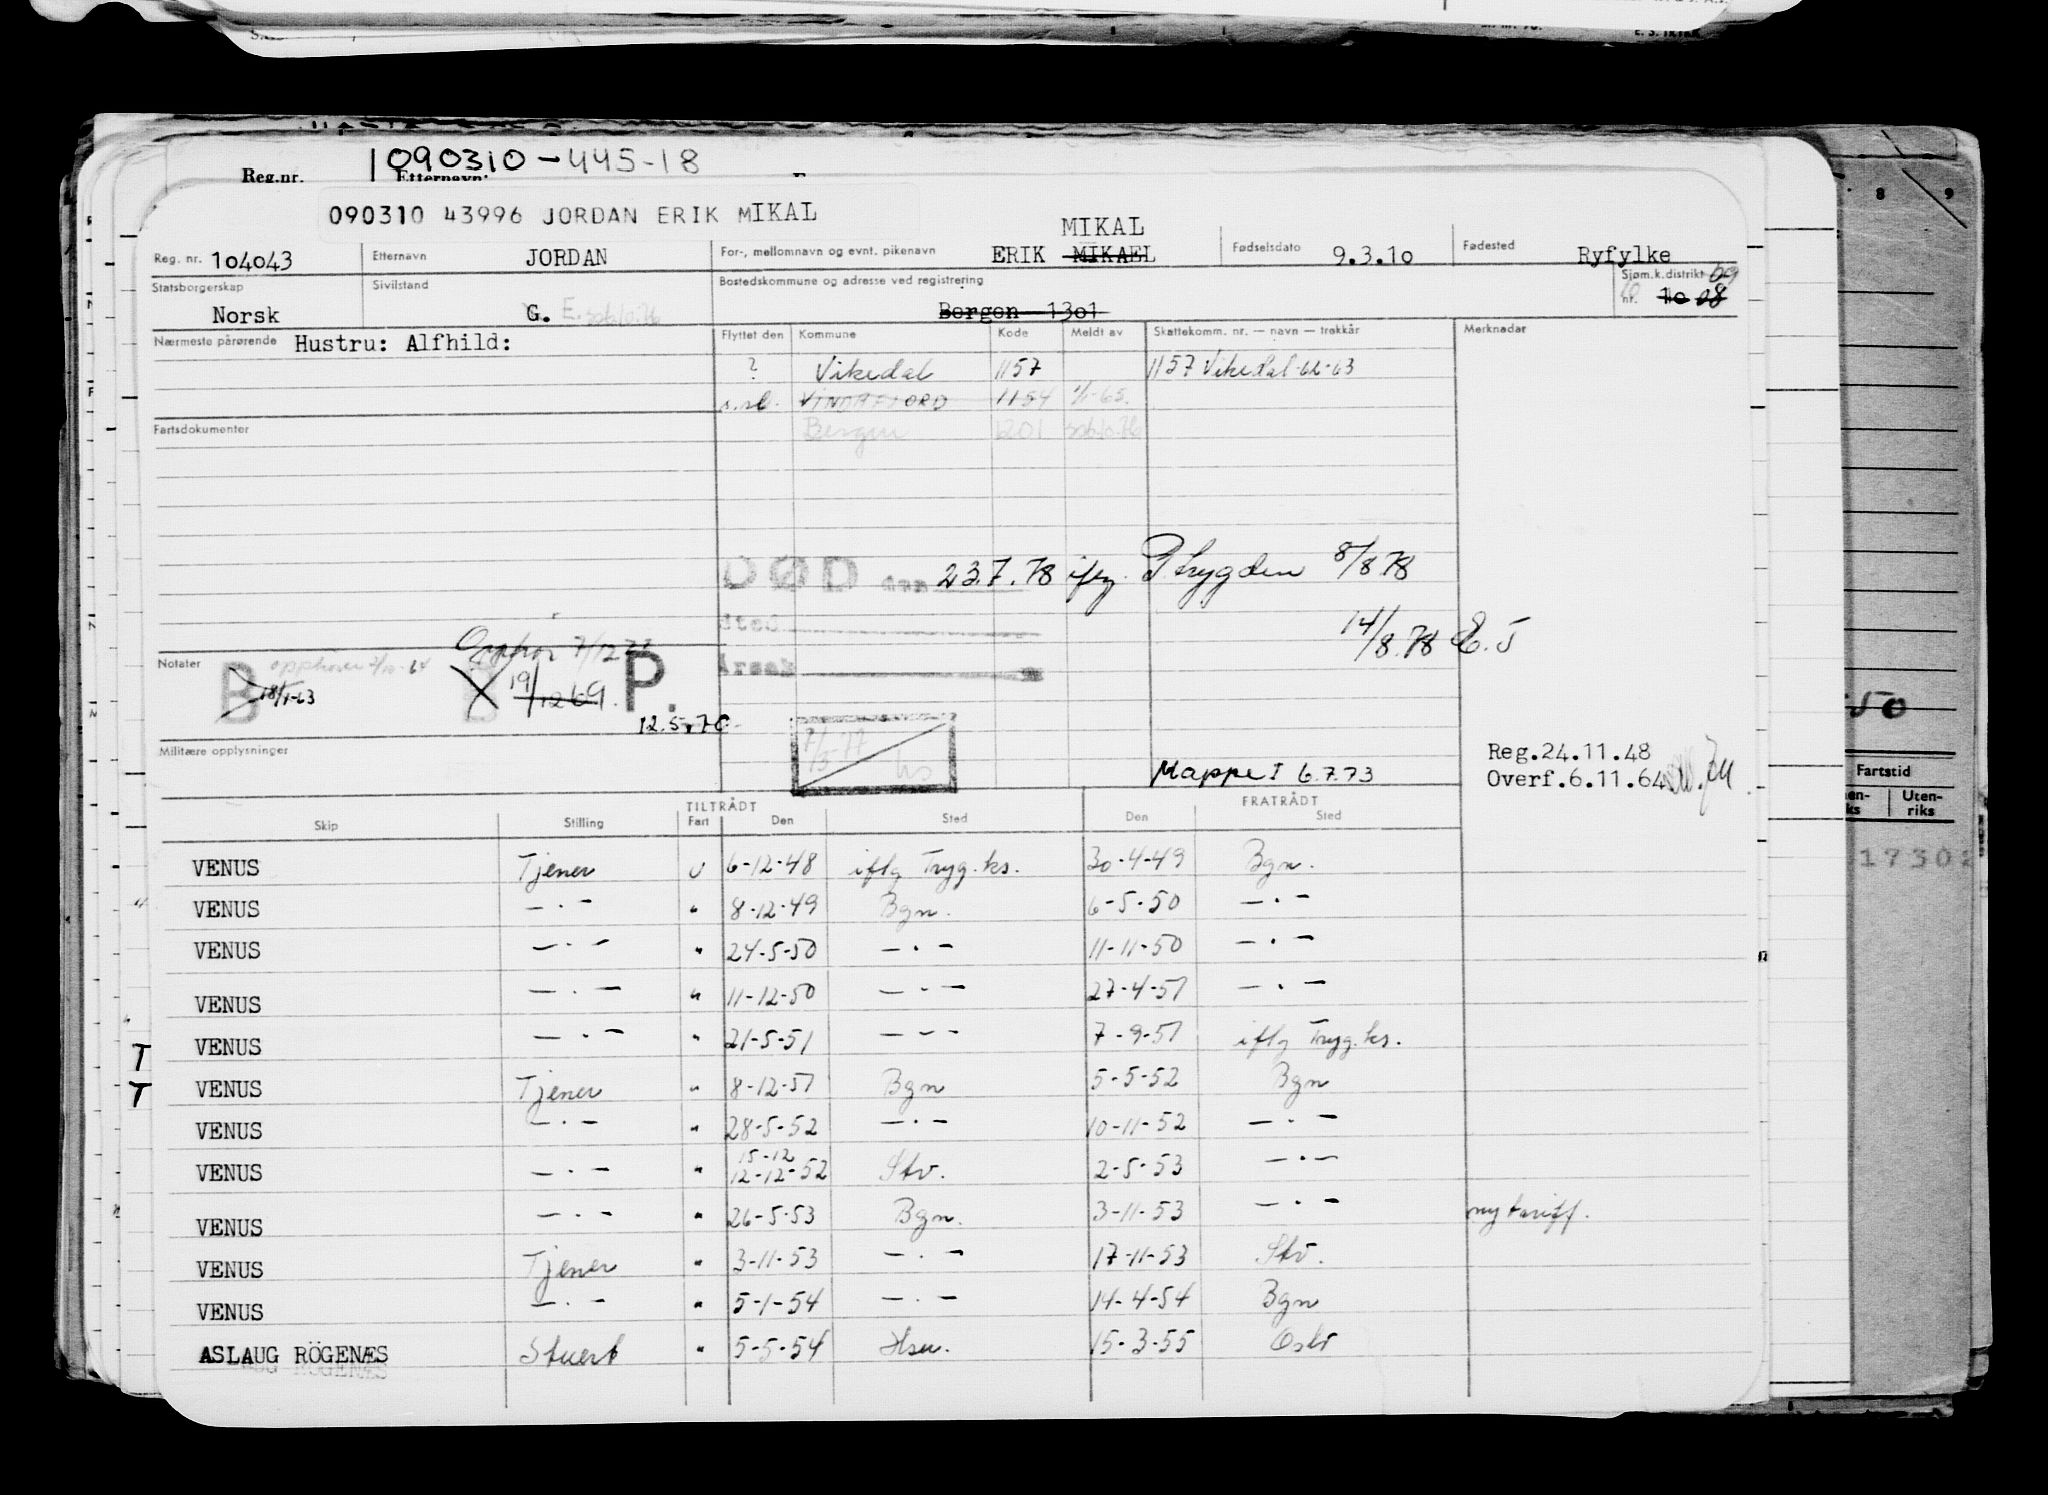 Reg.nr. 1090310-445-18
090310 43996 JORDAN ERIK MIKAL
MIKAL
Reg. nr. 104043 Etternavn JORDAN For-, mellomnavn og evnt. pikenavn ERIK MIKAEL Fødselsdato 9.3.10 Fødested Ryfylke
Statsborgerskap Norsk Sivilstand G. E. Bostedskommune og adresse ved registrering Bergen 1301 Sjøm.k.distrikt nr. 10 08 09
Nærmeste pårørende Hustru: Alfhild: Flyttet den Kommune Kode Meldt av Skattekomm. nr. — navn — trekkår Merknader
? Vikedal 1157 1157 Vikedal 62-63
VINDAFJORD 1154 1/1-65.
Fartsdokumenter Bergen 1201
DØD den 23.7.78 iflg. P trygden 8/8 78
Sted
14/8.78 E.J
Årsak
Notater B opphører 2/10-64 18/1-63 Opphør 7/12 19/12 69 P. 12.5.76
Militære opplysninger
7/3 77 hs
Mappe I 6.7.73
Reg.24.11.48
Overf.6.11.64
TILTRÅDT FRATRÅDT
Skip Stilling Fart Den Sted Den Sted
VENUS Tjener U 6-12-48 iflg Tryg.ks. 30-4-49 Bgn.
VENUS —·— " 8-12-49 Bgn. 6-5-50 —·—
VENUS —·— " 24-5-50 —·— 11-11-50 —·—
VENUS —·— " 11-12-50 —·— 27-4-51 —·—
VENUS —·— " 21-5-51 —·— 7-9-51 iflg Tryg.ks.
VENUS Tjener " 8-12-51 Bgn 5-5-52 Bgn
VENUS —·— " 28-5-52 —·— 10-11-52 —·—
15-12
VENUS —·— " 12-12-52 Stv. 2-5-53 —·—
VENUS —·— " 26-5-53 Bgn. 3-11-53 —·— ny tariff.
VENUS Tjener " 3-11-53 —·— 17-11-53 Stv.
VENUS —·— " 5-1-54 —·— 14-4-54 Bgn
ASLAUG RÖGENÆS Stuert " 5-5-54 Hsu. 15-3-55 Oslo
T
T
8 9
50
Fartstid
Uten-
riks
17302